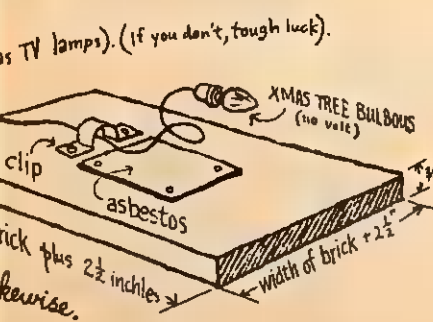 as TV lamps). (if you don't, tough luck).
XMAS TREE BULBOUS
(110 volt)
clip
asbestos
rick plus 2½ inchles
width of brick + 2½"
kewise.